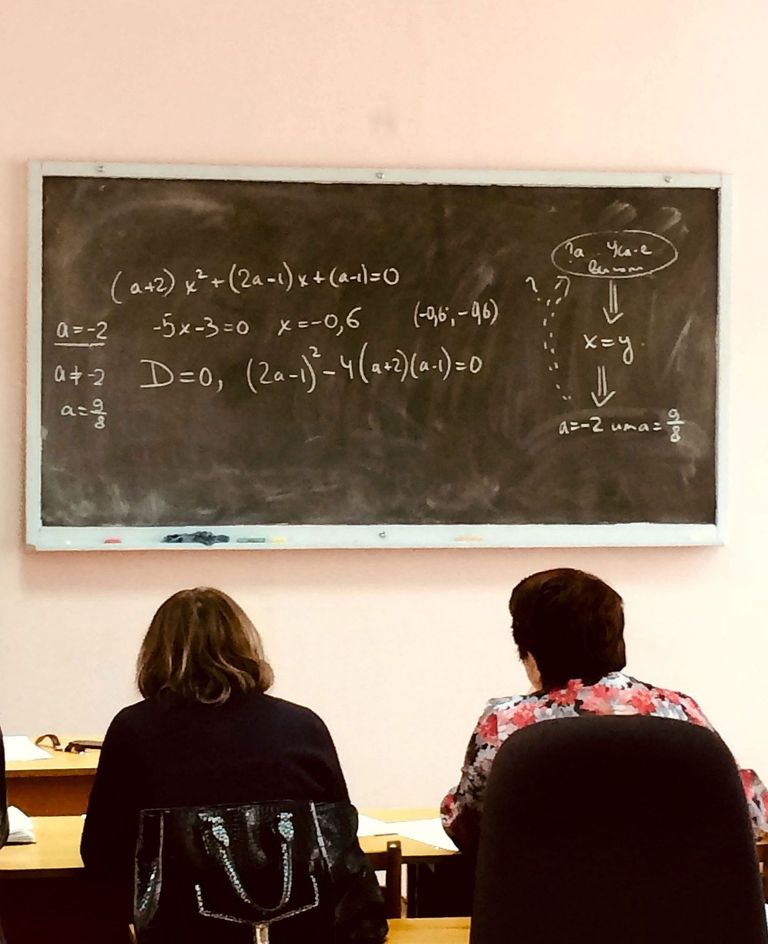 (a+2) x² + (2a-1) x + (a-1) = 0
a = -2 -5x-3=0 x=-0,6 (-0,6; -0,6)
a ≠ -2 D=0, (2a-1)² - 4(a+2)(a-1)=0
a = 9/8
?a Усл-е
вып
x=y
a=-2 или a= 9/8